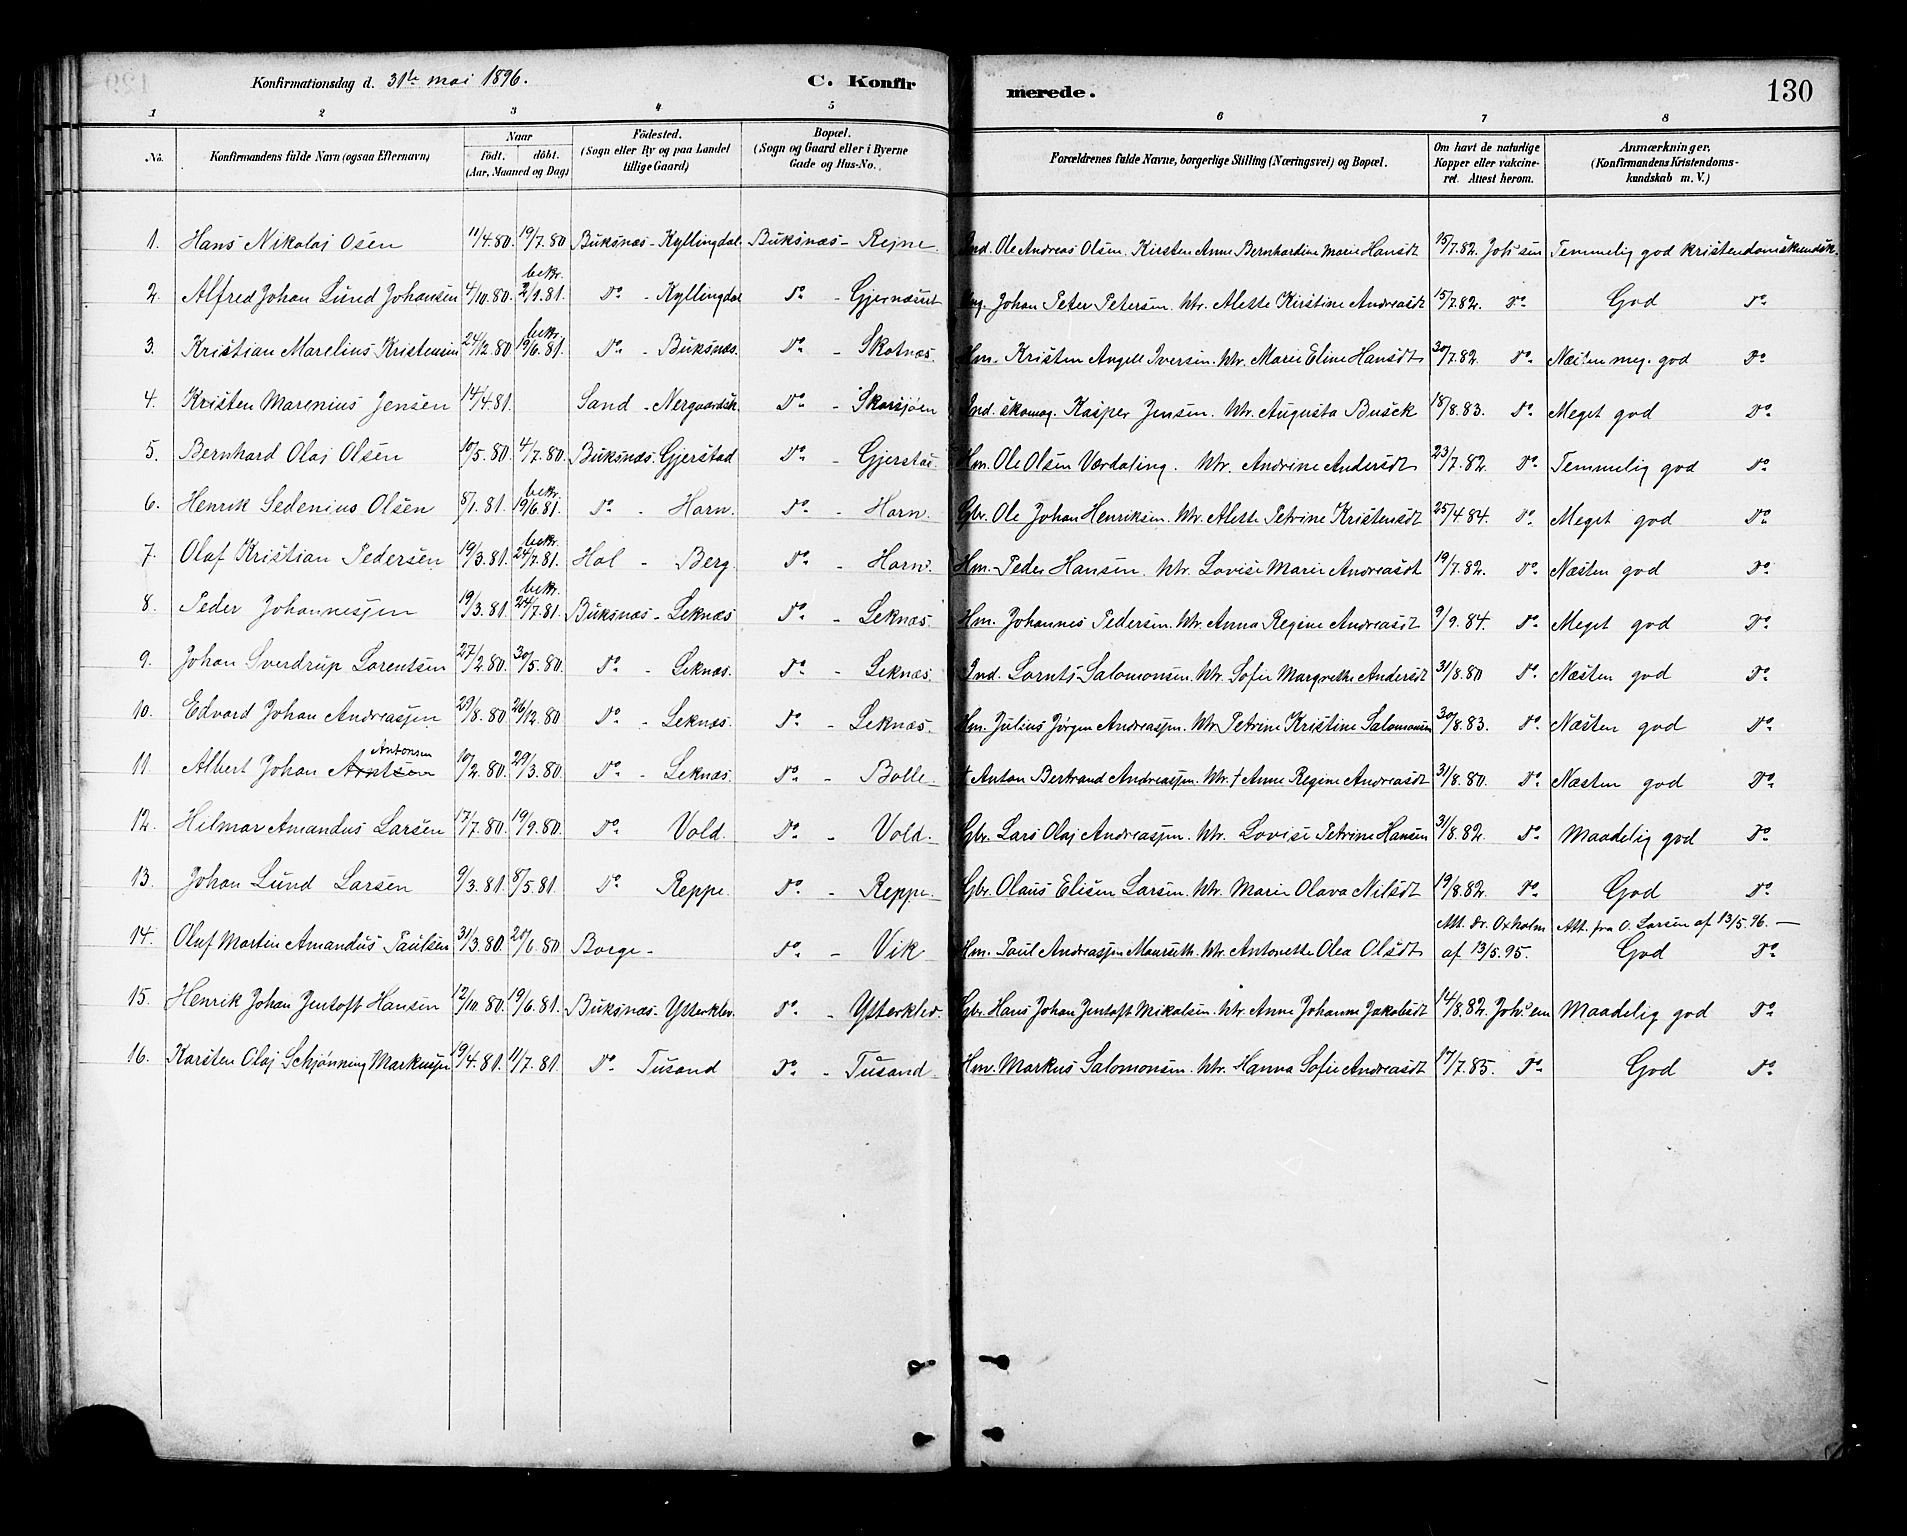 Konfirmationsdag d. 31te mai 1896. C. Konfir merede. 130
1 2 3 4 5 6 7 8
No. Konfirmandens fulde Navn (ogsaa Efternavn) Naar Födt. döbt. (Aar, Maaned og Dag) Födested. (Sogn eller By og paa Landet tillige Gaard) Bopæl. (Sogn og Gaard eller i Byerne Gade og Hus-No. Forældrenes fulde Navne, borgerlige Stilling (Næringsvei) og Bopæl. Om havt de naturlige Kopper eller vakcineret. Attest herom. Anmærkninger. (Konfirmandens Kristendomskundskab m. V.)
1. Hans Nikolaj Osen 11/4.80. 19/7.80 Buksnæs - Kyllingdal Buksnæs - Rejne. Ind. Ole Andreas Olsen. Kirsten Anne Bernhardine Marie Hansdt 15/7.82. Temmelig god kristendomskundsk.
2. Alfred Johan Lund Johansen 4/10.80. bekr. 2/1.81. Do - Kyllingdal Do - Johan Peter Petersen. Htr. Alette Kirstine Andreasdt 15/7.82. Do God Do
3. Kristian Marelius Kristensen 24/12.80 bekr. 19/6.81. Do - Buksnæs. Do - Skotnæs. Hm. Kristen Angell Iversen. Htr. Marie Eline Hansdt 30/7.82. Do Næsten meg. god Do
4. Kristen Marenius Jensen 14/4.81. Sand - Nergaardsh. Do - Skarsjøen Ind. skomag. Kasper Jensen. Htr. Augusta Busck 18/8.83. Do Meget god Do
5. Bernhard Olaj Olsen 10/5.80. 4/7.80. Buksnæs. Gjerstad Do - Gjerstad. Hm. Ole Olsen Værdaling. Htr. Andrine Andersdt 23/7.82. Do Temmelig god Do
6. Henrik Sedenius Olsen 8/1.81. bekr. 19/6.81. Do - Horn. Do - Horn. Gbr. Ole Johan Henriksen. Htr. Alette Petrine Kristensdt 25/4.84. Do Meget god Do
7. Olaf Kristian Pedersen 19/3.81. bekr. 24/7.81. Hol - Berg. Do - Horn. Hm. Peder Hansen. Htr. Lovise Marie Andreasdt 19/7.82. Do Næsten god Do
8. Peder Johannesjen 19/3.81. bekr. 24/7.81. Buksnæs - Leknæs Do - Leknæs. Hm. Johannes Pedersen. Htr. Anna Regine Andreasdt 9/9.84. Do Meget god Do
9. Johan Sverdrup Lorentsen 27/2.80. 30/5.80. Do - Leknæs. Do - Leknæs. Ind. Lornts Salomonsen. Htr. Sofie Margrethe Andersdt 31/8.80 Do Næsten god Do
10. Edvard Johan Andreasjen 29/8.80. 26/12.80 Do - Leknæs. Do - Leknæs. Hm. Julius Jørgen Andreasjen. Htr Petrine Kristine Salomonsen 30/8.83. Do Næsten god Do
11 Albert Johan Arntsen Antonsen 10/2.80. 29/3.80. Do - Leknæs. Do - Bolle. † Anton Bertrand Andreasjen. Htr. † Anne Regine Andreasdt 31/8.80. Do Næsten god Do
12. Hilmar Amandus Larsen 17/7.80. 19/9.80. Do Vold. Do - Vold. Gbr. Lars Olaj Andreasjen. Htr. Lovise Petrine Hansen 31/8.82. Do Maadelig god Do
13. Johan Lund Larsen 9/3.81. 8/5.81. Do Reppe. Do - Reppe. Gbr. Olaus Elisen Larsen. Htr. Marie Olava Nilsdt 19/8.82. Do God Do
14. Oluf Martin Amandus Paulsen 31/3.80. 20/6.80 Borge - Do - Vik Hm. Paul Andreasjen Htr. Antonette Olea Olsdt Att. dr. Oxholm af 13/5.95. Att. fra O. Larsen af 13/5.96. - God Do
15. Henrik Johan Jentoft Hansen 12/10.80. 19/6.81. Buksnæs - Ytterklev. Do - Ytterklev. Gbr. Hans Johan Jentoft Mikalsen. Htr. Anne Johanne Jakobsdt 14/8.82. Maadelig god Do
16. Karsten Olaj Schjønning Markusjen 19/4.81. 11/7.81. Do Tusand Do - Tusand. Hm. Markus Salomonsen. Htr. Hanna Sofie Andreasdt 17/7.85. Do God Do